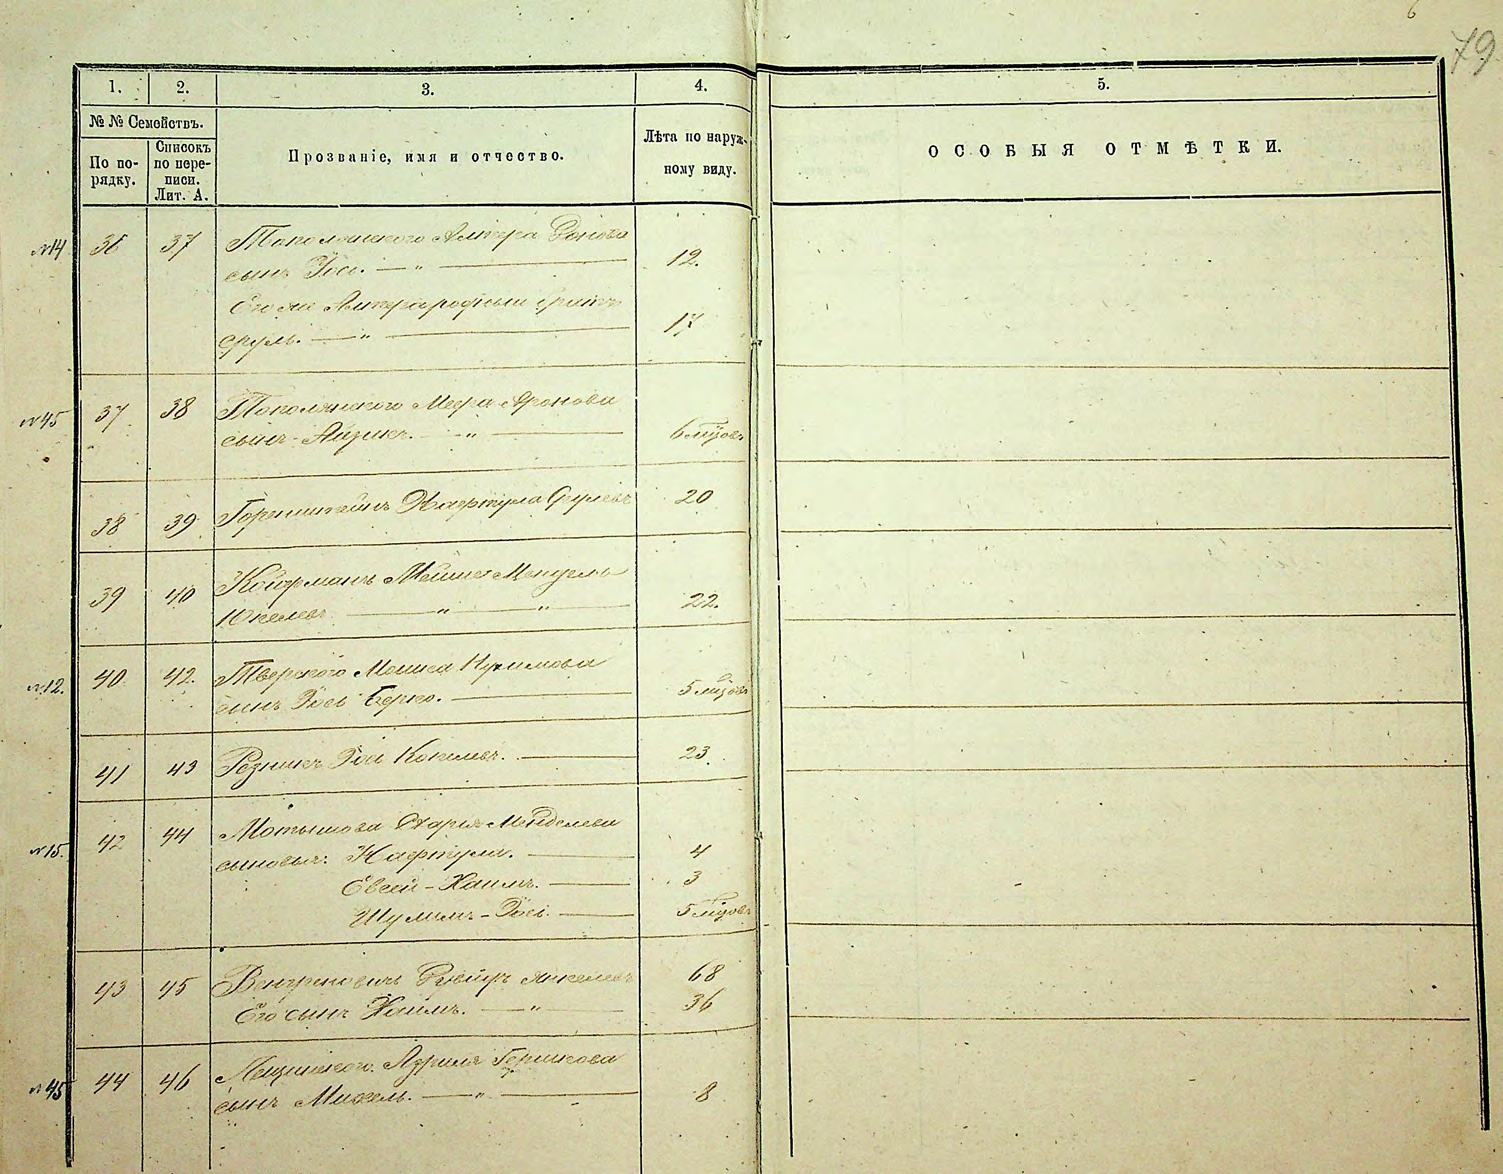 6
79
1. 2. 3. 4. 5.
№ № Семействъ.
По по-
рядку.
Списокъ
по пере-
писи.
Лит. А.
Прозваніе, имя и отчество.
Лѣта по наруж-
ному виду.
ОСОБЫЯ ОТМѢТКИ.
№14 36 37 Тополянского Алтера
сынъ Іось. — „ — 12.
Его же Алтера родный братъ
Сруль. — „ — 17
№45 37 38 Тополянского Меера Аронова
сынъ Айзикъ. — „ — 6 мѣсов
38 39 Горенштейнъ Нафтула Срулевъ 20
39 40 Койфманъ Мендель
Юкелевъ — „ — „ — 22.
№12. 40 42. Тверского
сынъ Іось Берко. — 5 мѣсов
41 43 Резникъ Іось — 23
№15. 42 44 Мотышова Менделева
сыновья: Нафтула. — 4
Евсей-Хаимъ. — 3
Шулимъ-Іось. — 5 мѣсов
43 45 Янкелевъ 68
Его сынъ Хаимъ. — „ — 36
№45 44 46 Гершкова
сынъ Михель. — „ — 8